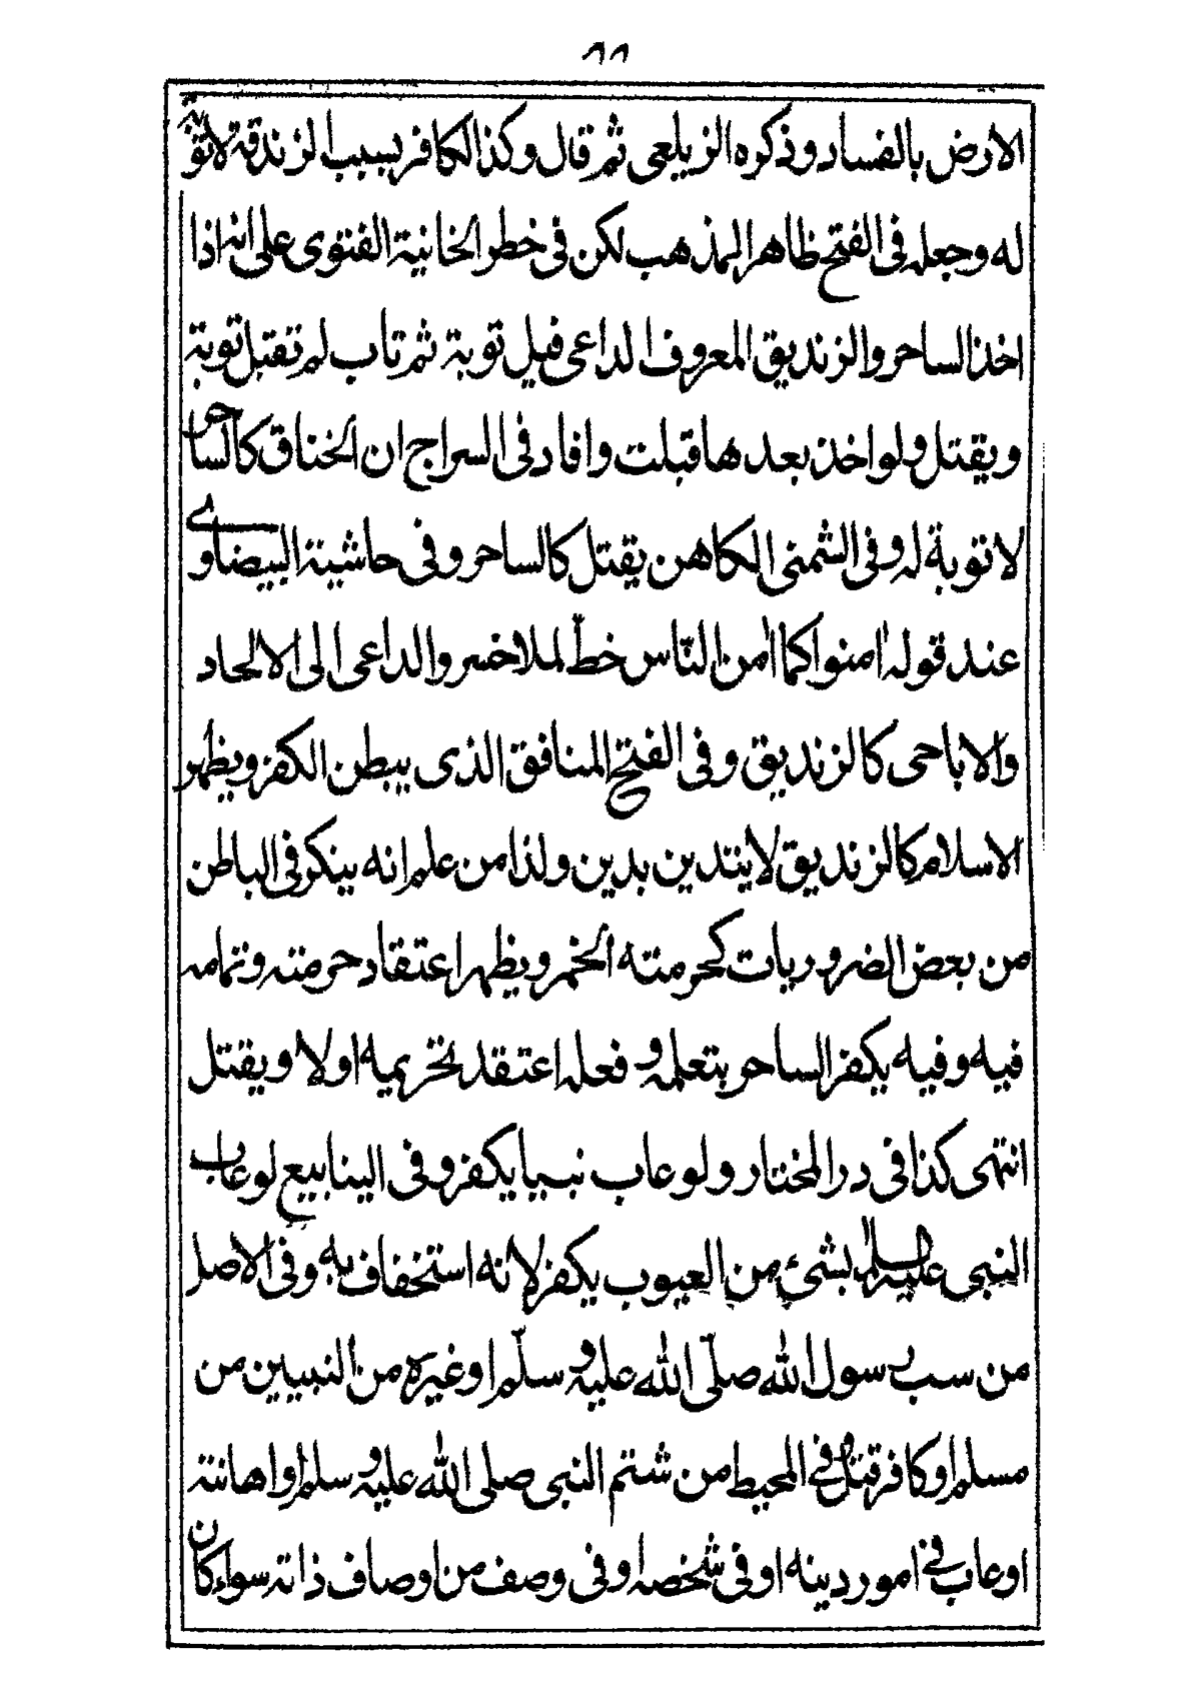 ٨٨
الارض بالفساد وذكره الزيلعى ثم قال وكذا الكافر بسبب الزندقة لاتوبة
له وجعله فى الفتح ظاهر المذهب لكن فى خطر الخانية الفتوى على انه اذا
اخذ الساحر والزنديق المعروف الداعى قبل توبة ثم تاب لم تقبل توبة
ويقتل ولو اخذ بعدها قبلت وافاد فى السراج ان الخناق كالساحر
لاتوبة له وفى الشمنى الكاهن يقتل كالساحر وفى حاشية البيضاوى
عند قوله امنوا كما امن الناس خط لملا خسر والداعى الى الالحاد
والاباحى كالزنديق وفى الفتح المنافق الذى يبطن الكفر ويظهر
الاسلام كالزنديق لايتدين بدين ولذا من علم انه ينكر فى الباطن
من بعض الضروريات كحرمته الخمر ويظهر اعتقاد حرمته وتمامه
فيه وفيه يكفر الساحر بتعلمه وفعله اعتقد تحريمه اولا ويقتل
انتهى كذا فى در المختار ولو عاب نبيا يكفر وفى الينابيع لو عاب
النبى عليه السلام بشئ من العيوب يكفر لانه استخفاف به وفى الاصل
من سب رسول الله صلّى الله عليه وسلّم اوغيره من النبيين من
مسلم اوكافر قتل وفى المحيط من شتم النبى صلى الله عليه وسلم اواهانته
اوعاب فى اموردينه اوفى شخصه اوفى وصف من اوصاف ذاته سواء كان